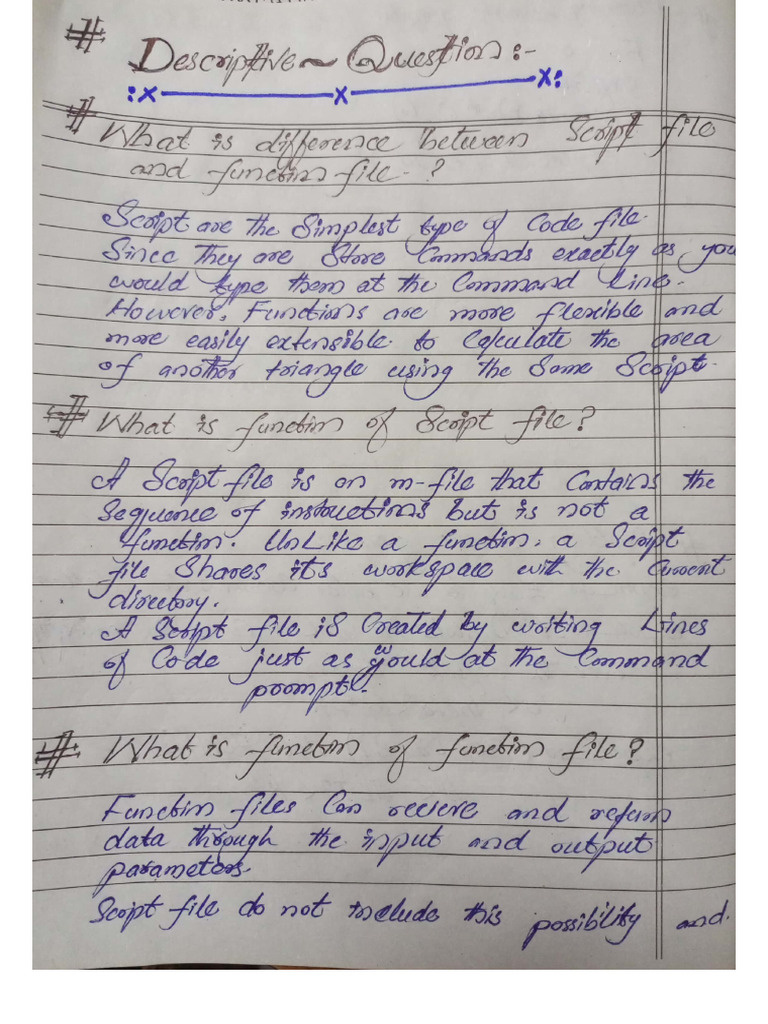 # Descriptive ~ Question :-
:x ——— x ——— x:
# What is difference between Script file
and function file - ?
Script are the Simplest type of Code file.
Since they are Store Commands exactly as you
would type them at the Command Line.
However, Functions are more flexible and
more easily extensible to Calculate the area
of another triangle using the Same Script.
# What is function of Script file?
A Script file is an m-file that Contains the
Sequence of instructions but is not a
function. Unlike a function, a Script
file Shares its workspace with the Current
directory.
A Script file is Created by writing Lines
of Code just as would at the Command
prompt.
# What is function of function file?
Function files Can recieve and return
data through the input and output
parameters.
Script file do not include this possibility and.